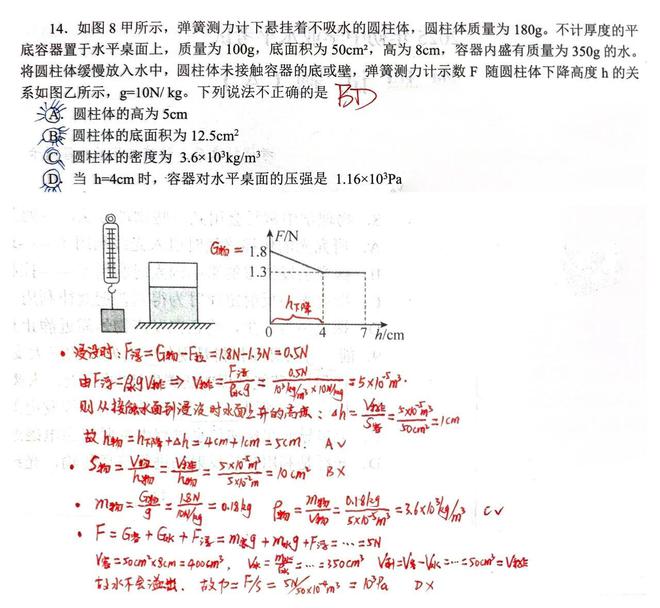 14. 如图 8 甲所示，弹簧测力计下悬挂着不吸水的圆柱体，圆柱体质量为 180g。不计厚度的平
底容器置于水平桌面上，质量为 100g，底面积为 50cm²，高为 8cm，容器内盛有质量为 350g 的水。
将圆柱体缓慢放入水中，圆柱体未接触容器的底或壁，弹簧测力计示数 F 随圆柱体下降高度 h 的关
系如图乙所示，g=10N/ kg。下列说法不正确的是 BD
A. 圆柱体的高为 5cm
B. 圆柱体的底面积为 12.5cm²
C. 圆柱体的密度为 3.6×10³kg/m³
D. 当 h=4cm 时，容器对水平桌面的压强是 1.16×10³Pa
F/N
G物 = 1.8
1.3
h下降
0 4 7 h/cm
• 浸没时：F浮=G物-F拉=1.8N-1.3N=0.5N
由F浮=ρ水gV排 => V排=F浮/ρ水g=0.5N/10³kg/m³×10N/kg=5×10⁻⁵m³.
则从接触水面到浸没时水面上升的高度：Δh=V排/S容=5×10⁻⁵m³/50cm²=1cm
故 h物=h下降+Δh=4cm+1cm=5cm. A√
• S物=V物/h物=V排/h物=5×10⁻⁵m³/5×10⁻²m=10cm² B×
• m物=G物/g=1.8N/10N/kg=0.18kg ρ物=m物/V物=0.18kg/5×10⁻⁵m³=3.6×10³kg/m³ C√
• F=G容+G水+F浮=m容g+m水g+F浮=…=5N
V容=50cm²×8cm=400cm³, V水=m水/ρ水=…=350cm³ V剩=V容-V水=…=50cm³=V排
故水不会溢出. 故P=F/S=5N/50×10⁻⁴m²=10³Pa D×